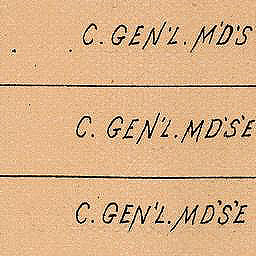 C. GEN'L. M'D'S
C. GEN'L. MD'S'E
C. GEN'L. MD'S'E